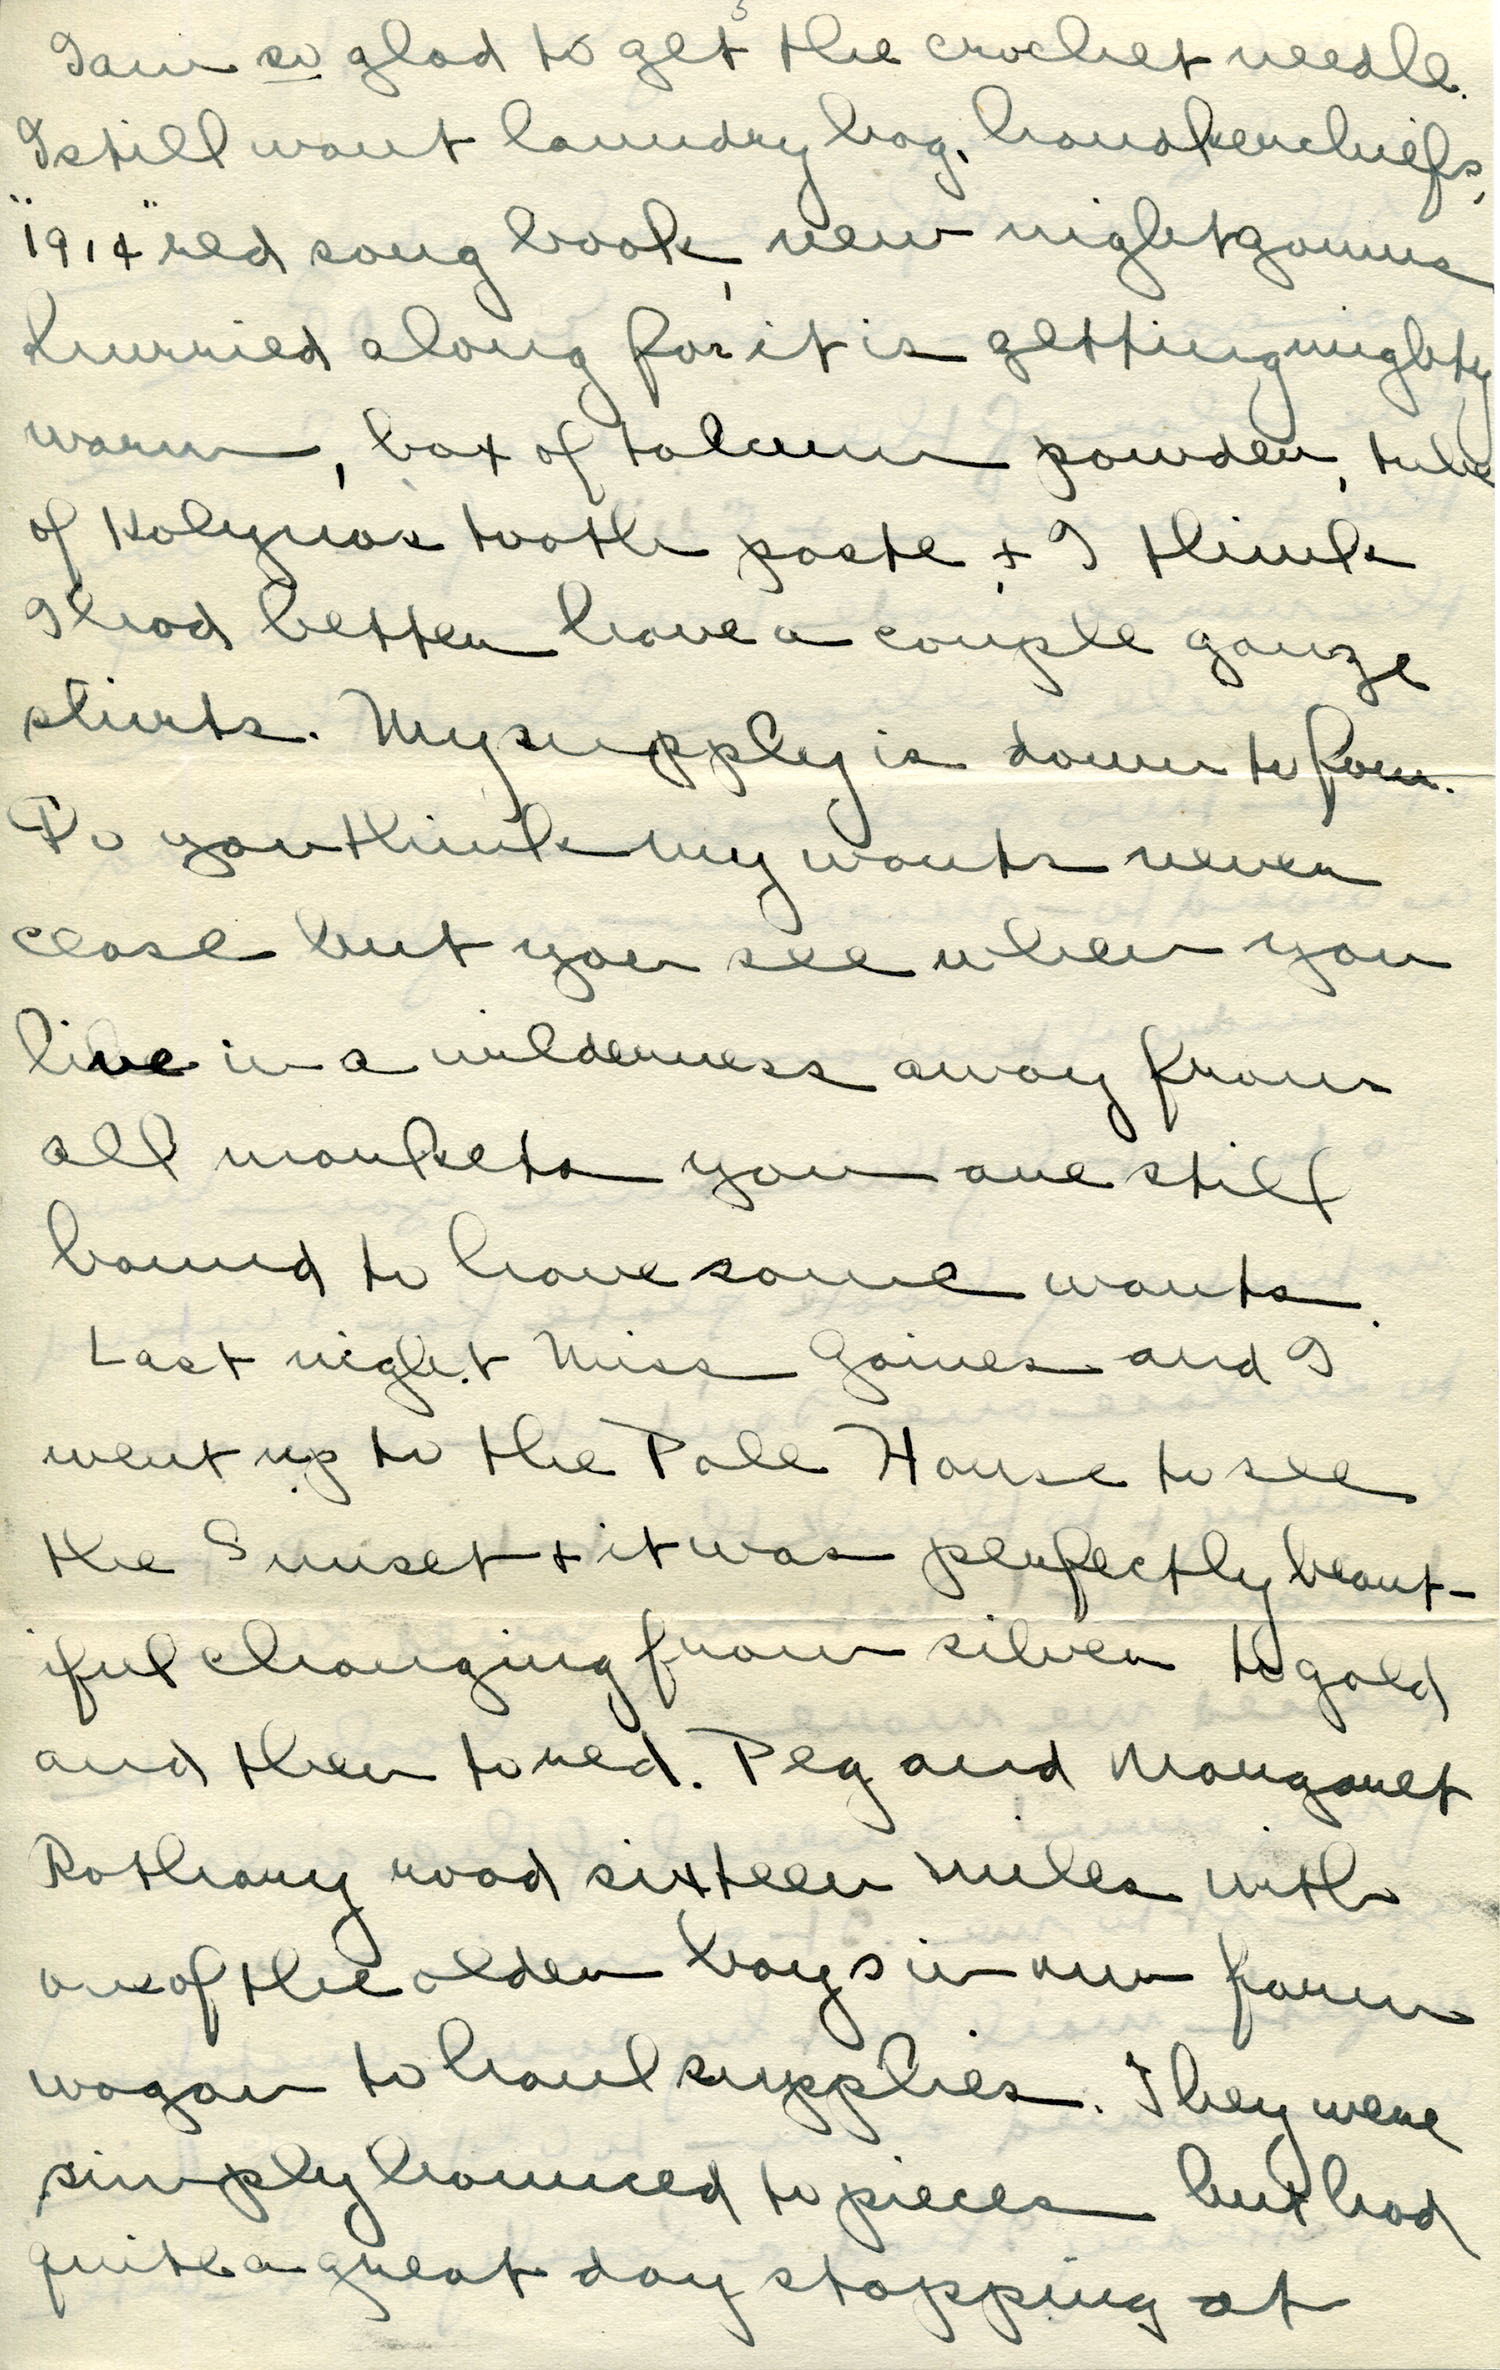 5
I am so glad to get the crochet needle.
I still want laundry bag, handkerchiefs,
"1914" red song book, new nightgowns
hurried along for it is getting mighty
warm, box of talcum powder, tube
of Kolynos tooth paste, + I think
I had better have a couple gauze
shirts. My supply is down to four.
Do you think my wants never
cease but you see when you
live in a wilderness away from
all markets you are still
bound to have some wants.
Last night Miss Gaines and I
went up to the Pole House to see
the Sunset + it was perfectly beaut-
iful changing from silver to gold
and then to red. Peg and Margaret
Rothany road sixteen miles with
one of the older boys in our farm
wagon to haul supplies. They were
simply bounced to pieces but had
quite a great day stopping at